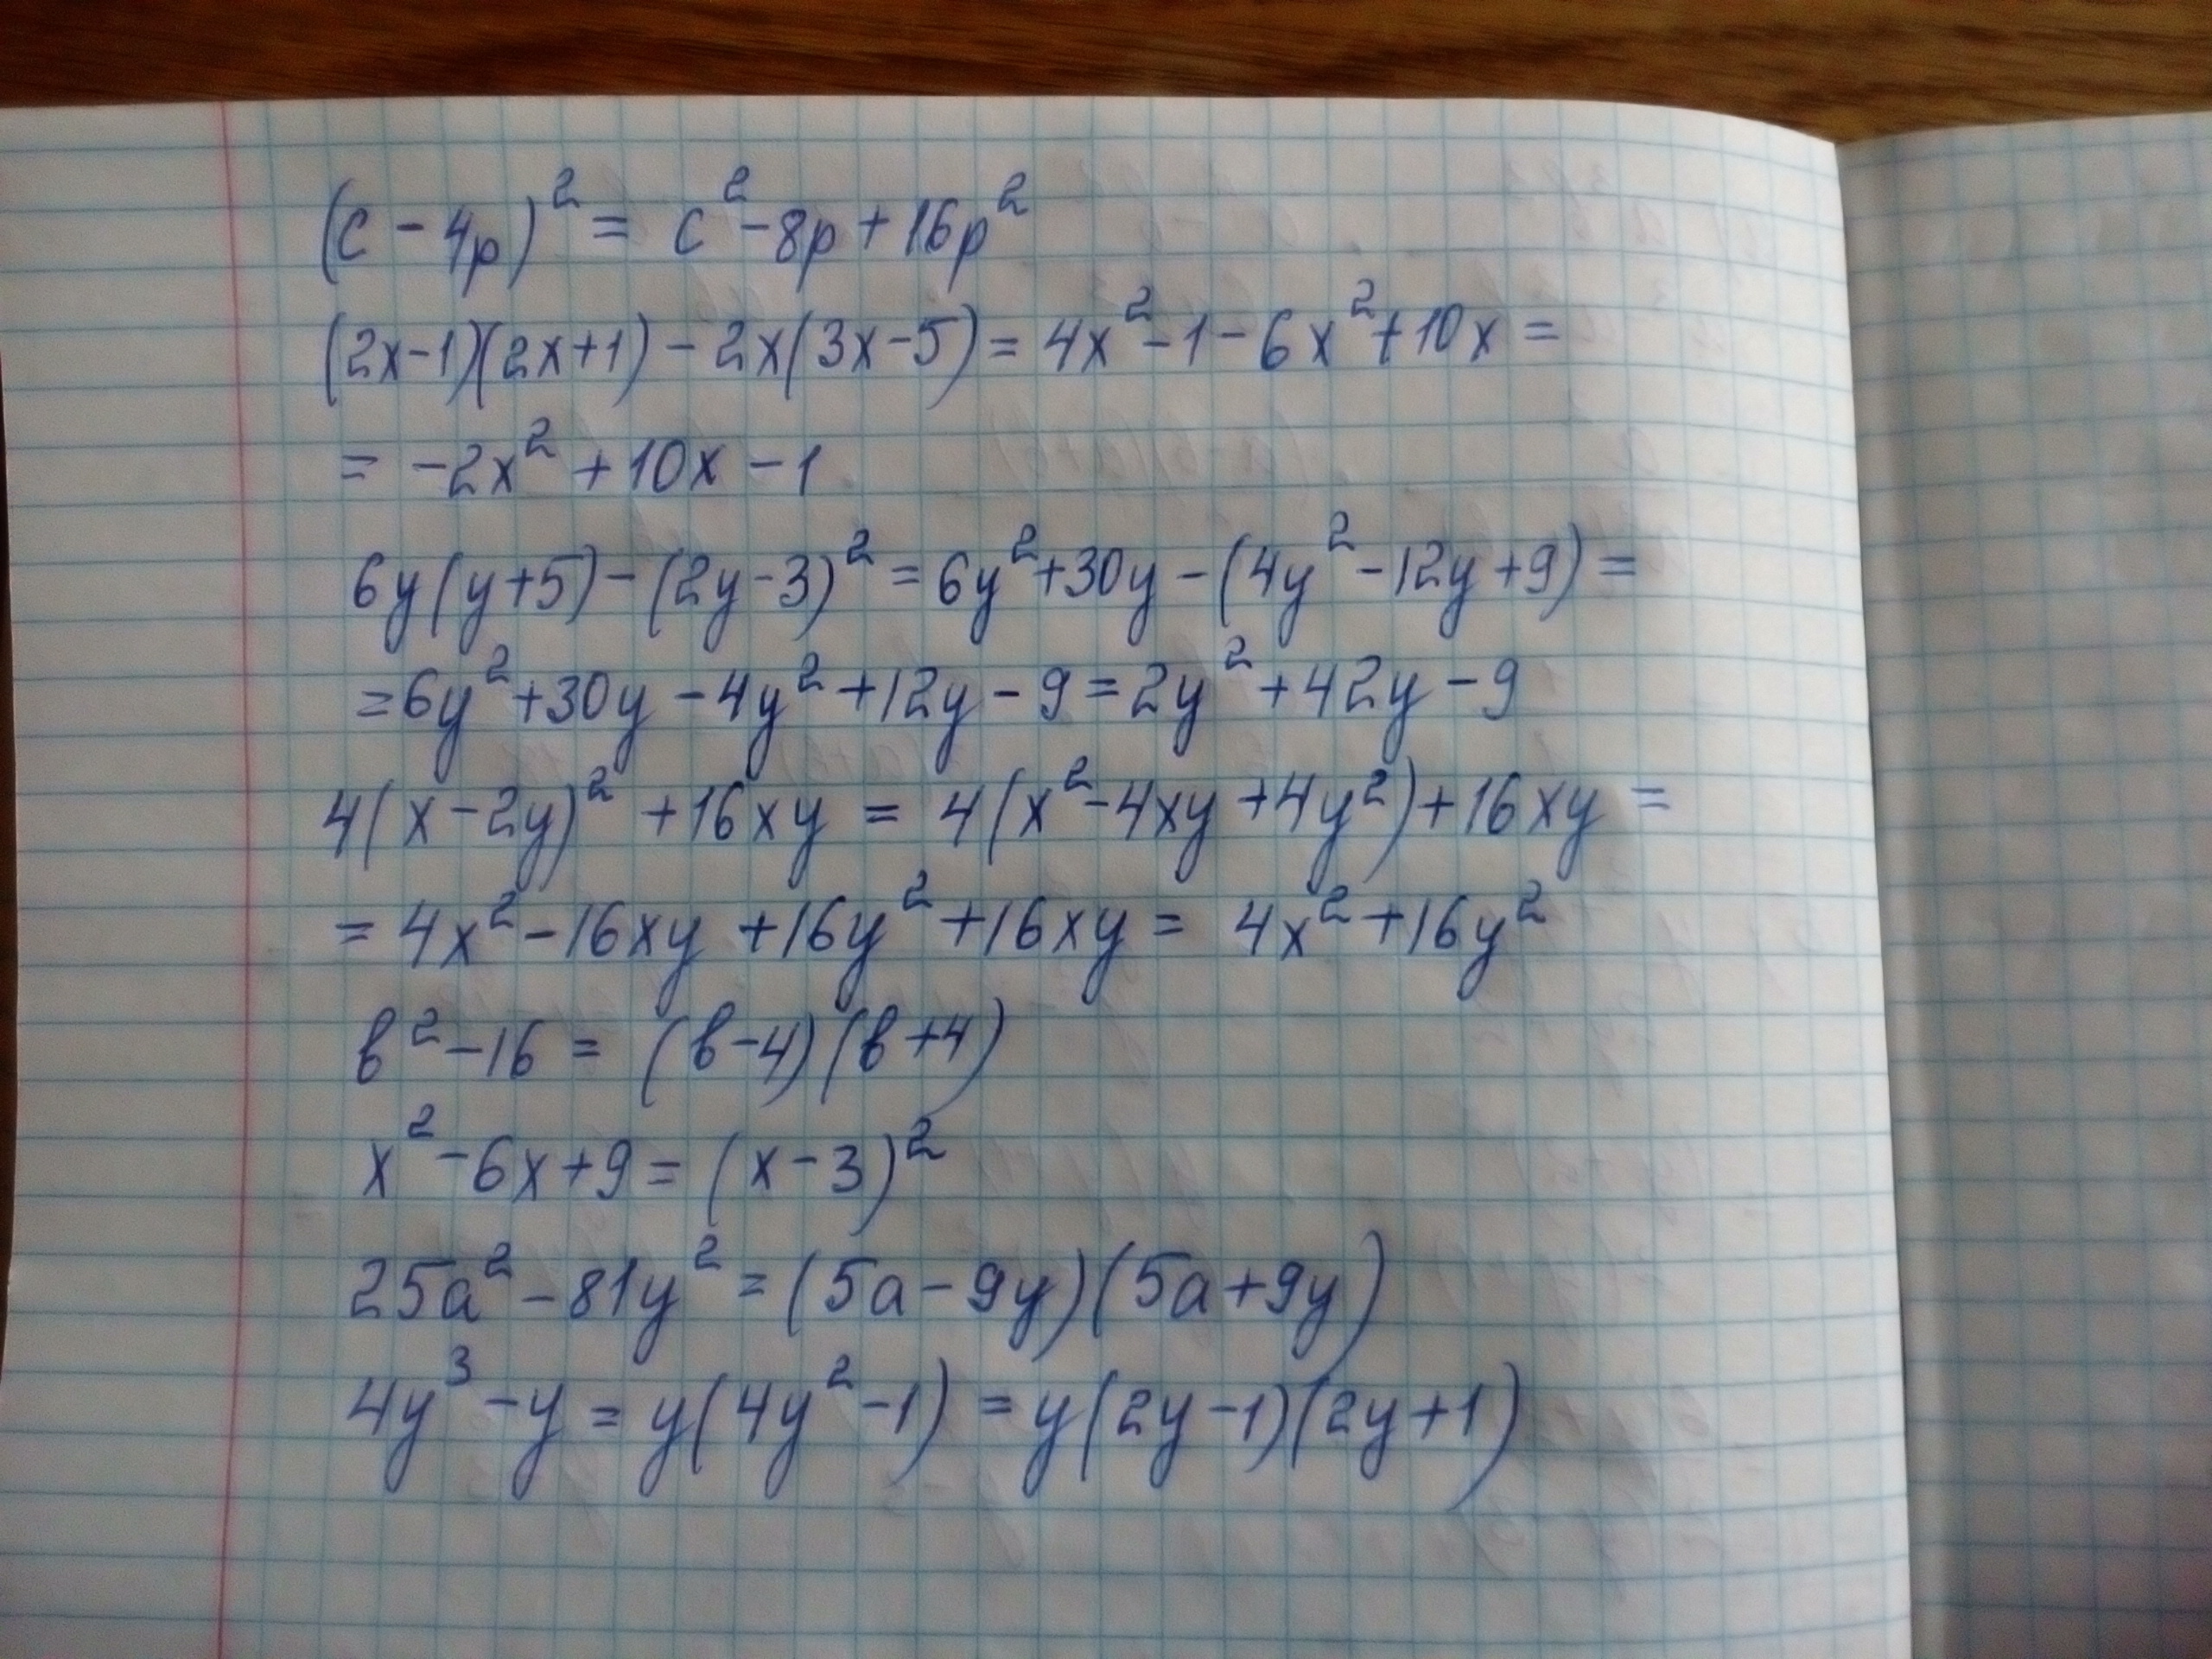 (c - 4p)² = c² - 8p + 16p²
(2x-1)(2x+1) - 2x(3x-5) = 4x² - 1 - 6x² + 10x =
= -2x² + 10x - 1
6y(y+5) - (2y-3)² = 6y² + 30y - (4y² - 12y + 9) =
= 6y² + 30y - 4y² + 12y - 9 = 2y² + 42y - 9
4(x - 2y)² + 16xy = 4(x² - 4xy + 4y²) + 16xy =
= 4x² - 16xy + 16y² + 16xy = 4x² + 16y²
b² - 16 = (b-4)(b+4)
x² - 6x + 9 = (x-3)²
25a² - 81y² = (5a - 9y)(5a + 9y)
4y³ - y = y(4y² - 1) = y(2y-1)(2y+1)